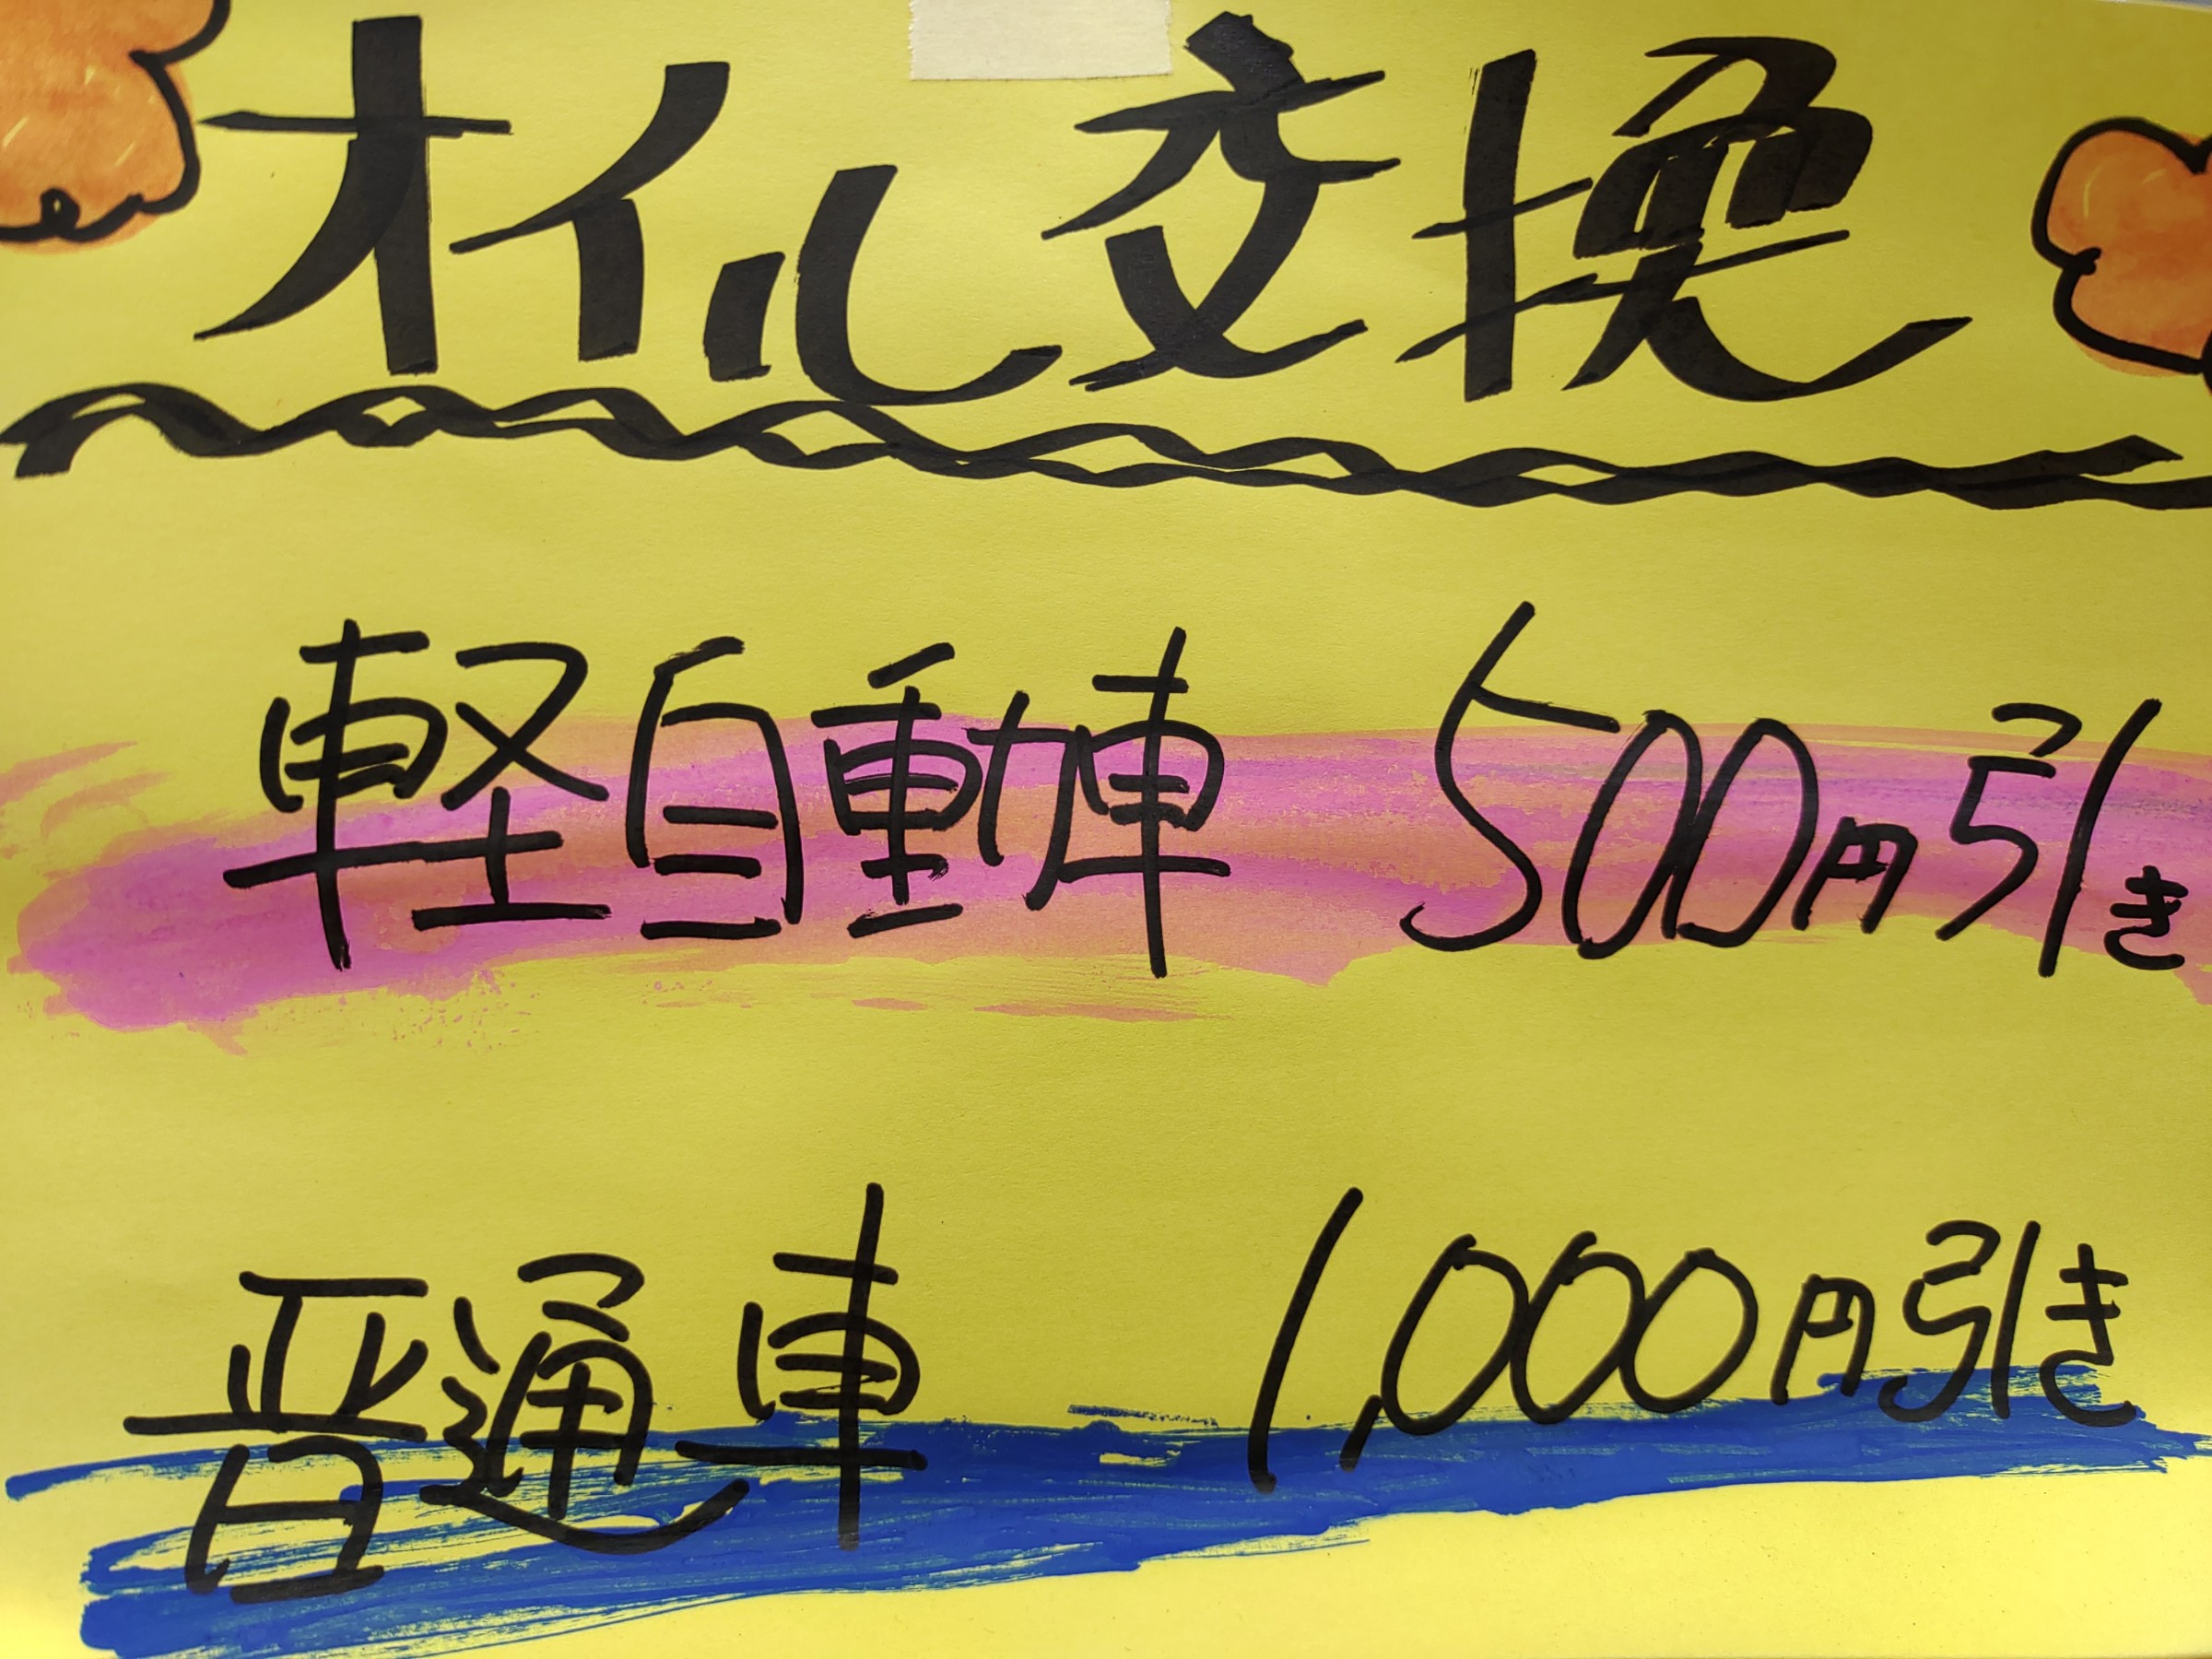 オイル交換
軽自動車 500円引き
普通車 1,000円引き